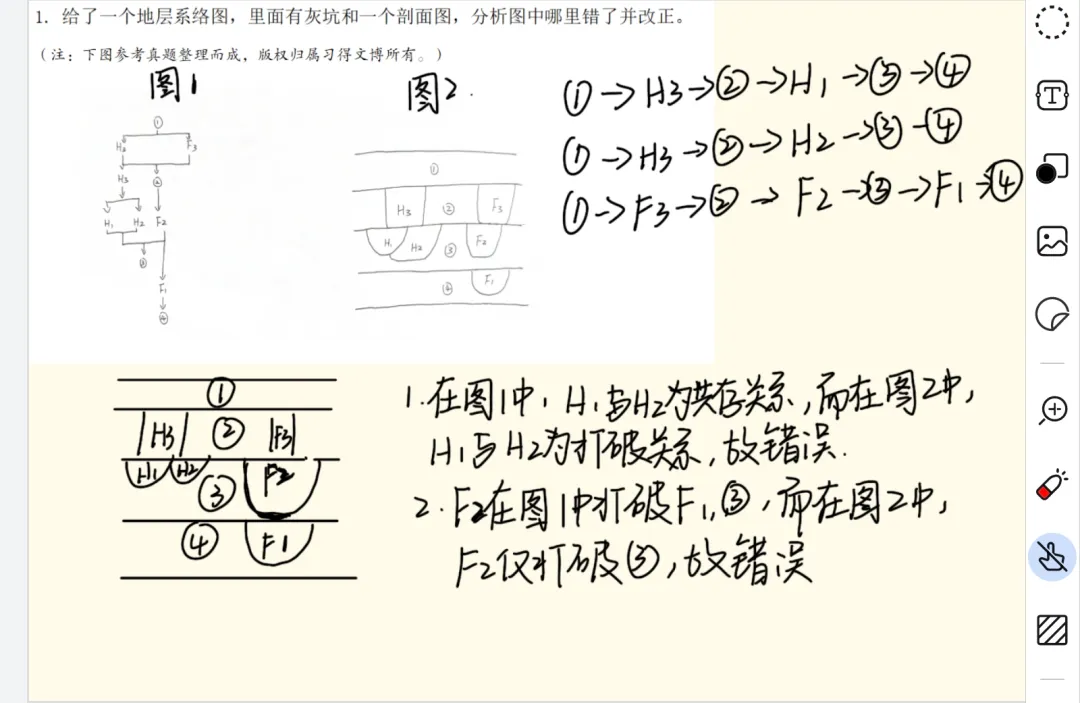 1. 给了一个地层系络图，里面有灰坑和一个剖面图，分析图中哪里错了并改正。
（注：下图参考真题整理而成，版权归属习得文博所有。）
图1
图2.
①→H3→②→H1→③→④
①→H3→②→H2→③→④
①→F3→②→F2→③→F1→④
①
F3
H3
②
H1
H2
F2
③
F1
④
①
H3
②
F3
H1
H2
③
F2
④
F1
①
H3
②
F3
H1
H2
③
F2
④
F1
1.在图1中，H1与H2为共存关系，而在图2中，
H1与H2为打破关系，故错误.
2.F2在图1中打破F1，③，而在图2中，
F2仅打破③，故错误